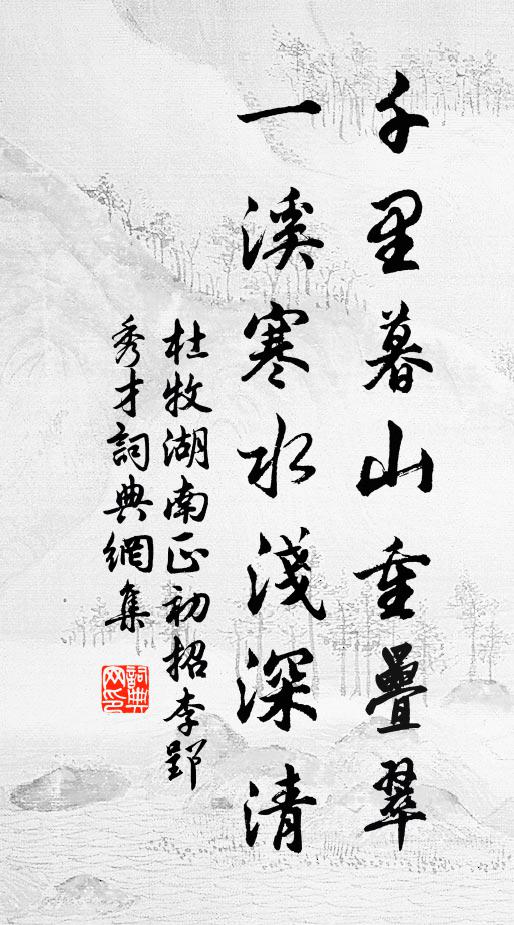 千里暮山重疊翠
一溪寒水淺深清
杜牧湖南正初招李郢
秀才詞典網集
詞典
网印